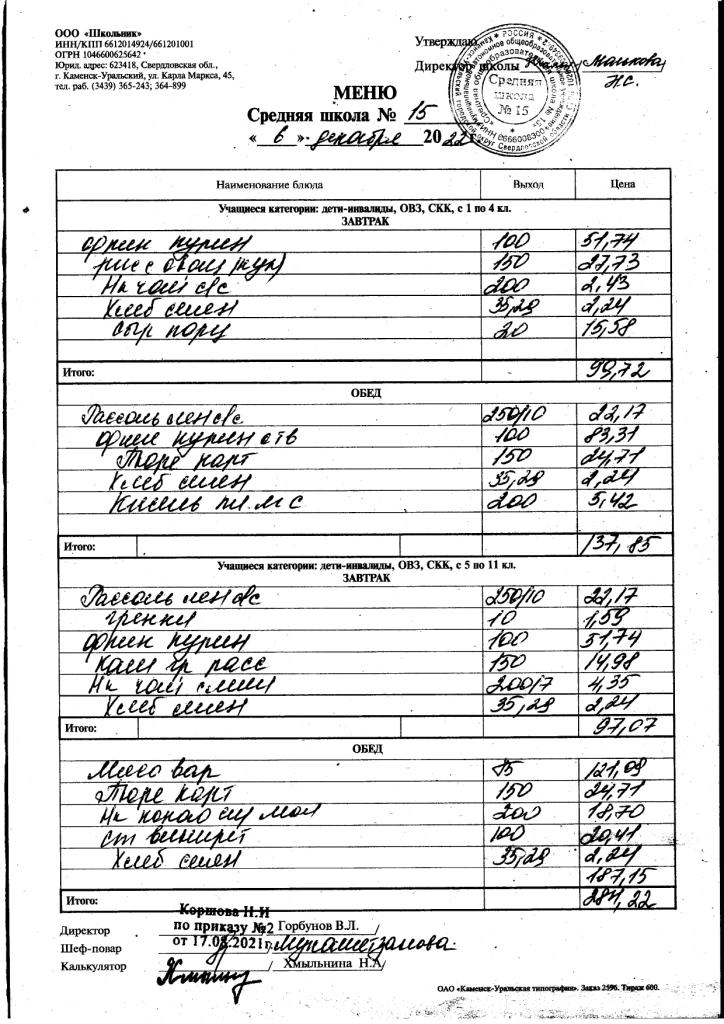 ООО «Школьник»
ИНН/КПП 6612014924/661201001
ОГРН 1046600625642
Юрил. адрес: 623418, Свердловская обл.,
г. Каменск-Уральский, ул. Карла Маркса, 45,
тел. раб. (3439) 365-243; 364-899
Утверждаю
Директор школы
Н.С.
Средняя школа № 15
МЕНЮ
Средняя школа № 15
« 6 » декабря 2022 г.
Наименование блюда Выход Цена
Учащиеся категории: дети-инвалиды, ОВЗ, СКК, с 1 по 4 кл.
ЗАВТРАК
100 51,74
150 27,73
На чай с/с 200 2,43
Хлеб 35,28 2,24
Сыр порц 20 15,58
Итого: 99,72
ОБЕД
Рассоль лен с/с 250/10 22,17
100 83,31
Пюре карт 150 24,71
Хлеб 35,28 2,24
Кисель пл. 200 5,42
Итого: 137,85
Учащиеся категории: дети-инвалиды, ОВЗ, СКК, с 5 по 11 кл.
ЗАВТРАК
Рассоль лен с/с 250/10 22,17
гренки 10 1,59
100 51,74
Каш гр расс 150 14,98
На чай с лим 200/7 4,35
Хлеб 35,28 2,24
Итого: 97,07
ОБЕД
Мясо вар 85 121,09
Пюре карт 150 24,71
На какао 200 18,70
ст винигрет 100 20,41
Хлеб 35,28 2,24
187,15
Итого: 284,22
Коршова Н.И
Директор по приказу №2 / Горбунов В.Л. /
Шеф-повар от 17.08.2021г.
Калькулятор / Хмыльнина Н.А /
ОАО «Каменск-Уральская типография». Заказ 2596. Тираж 600.